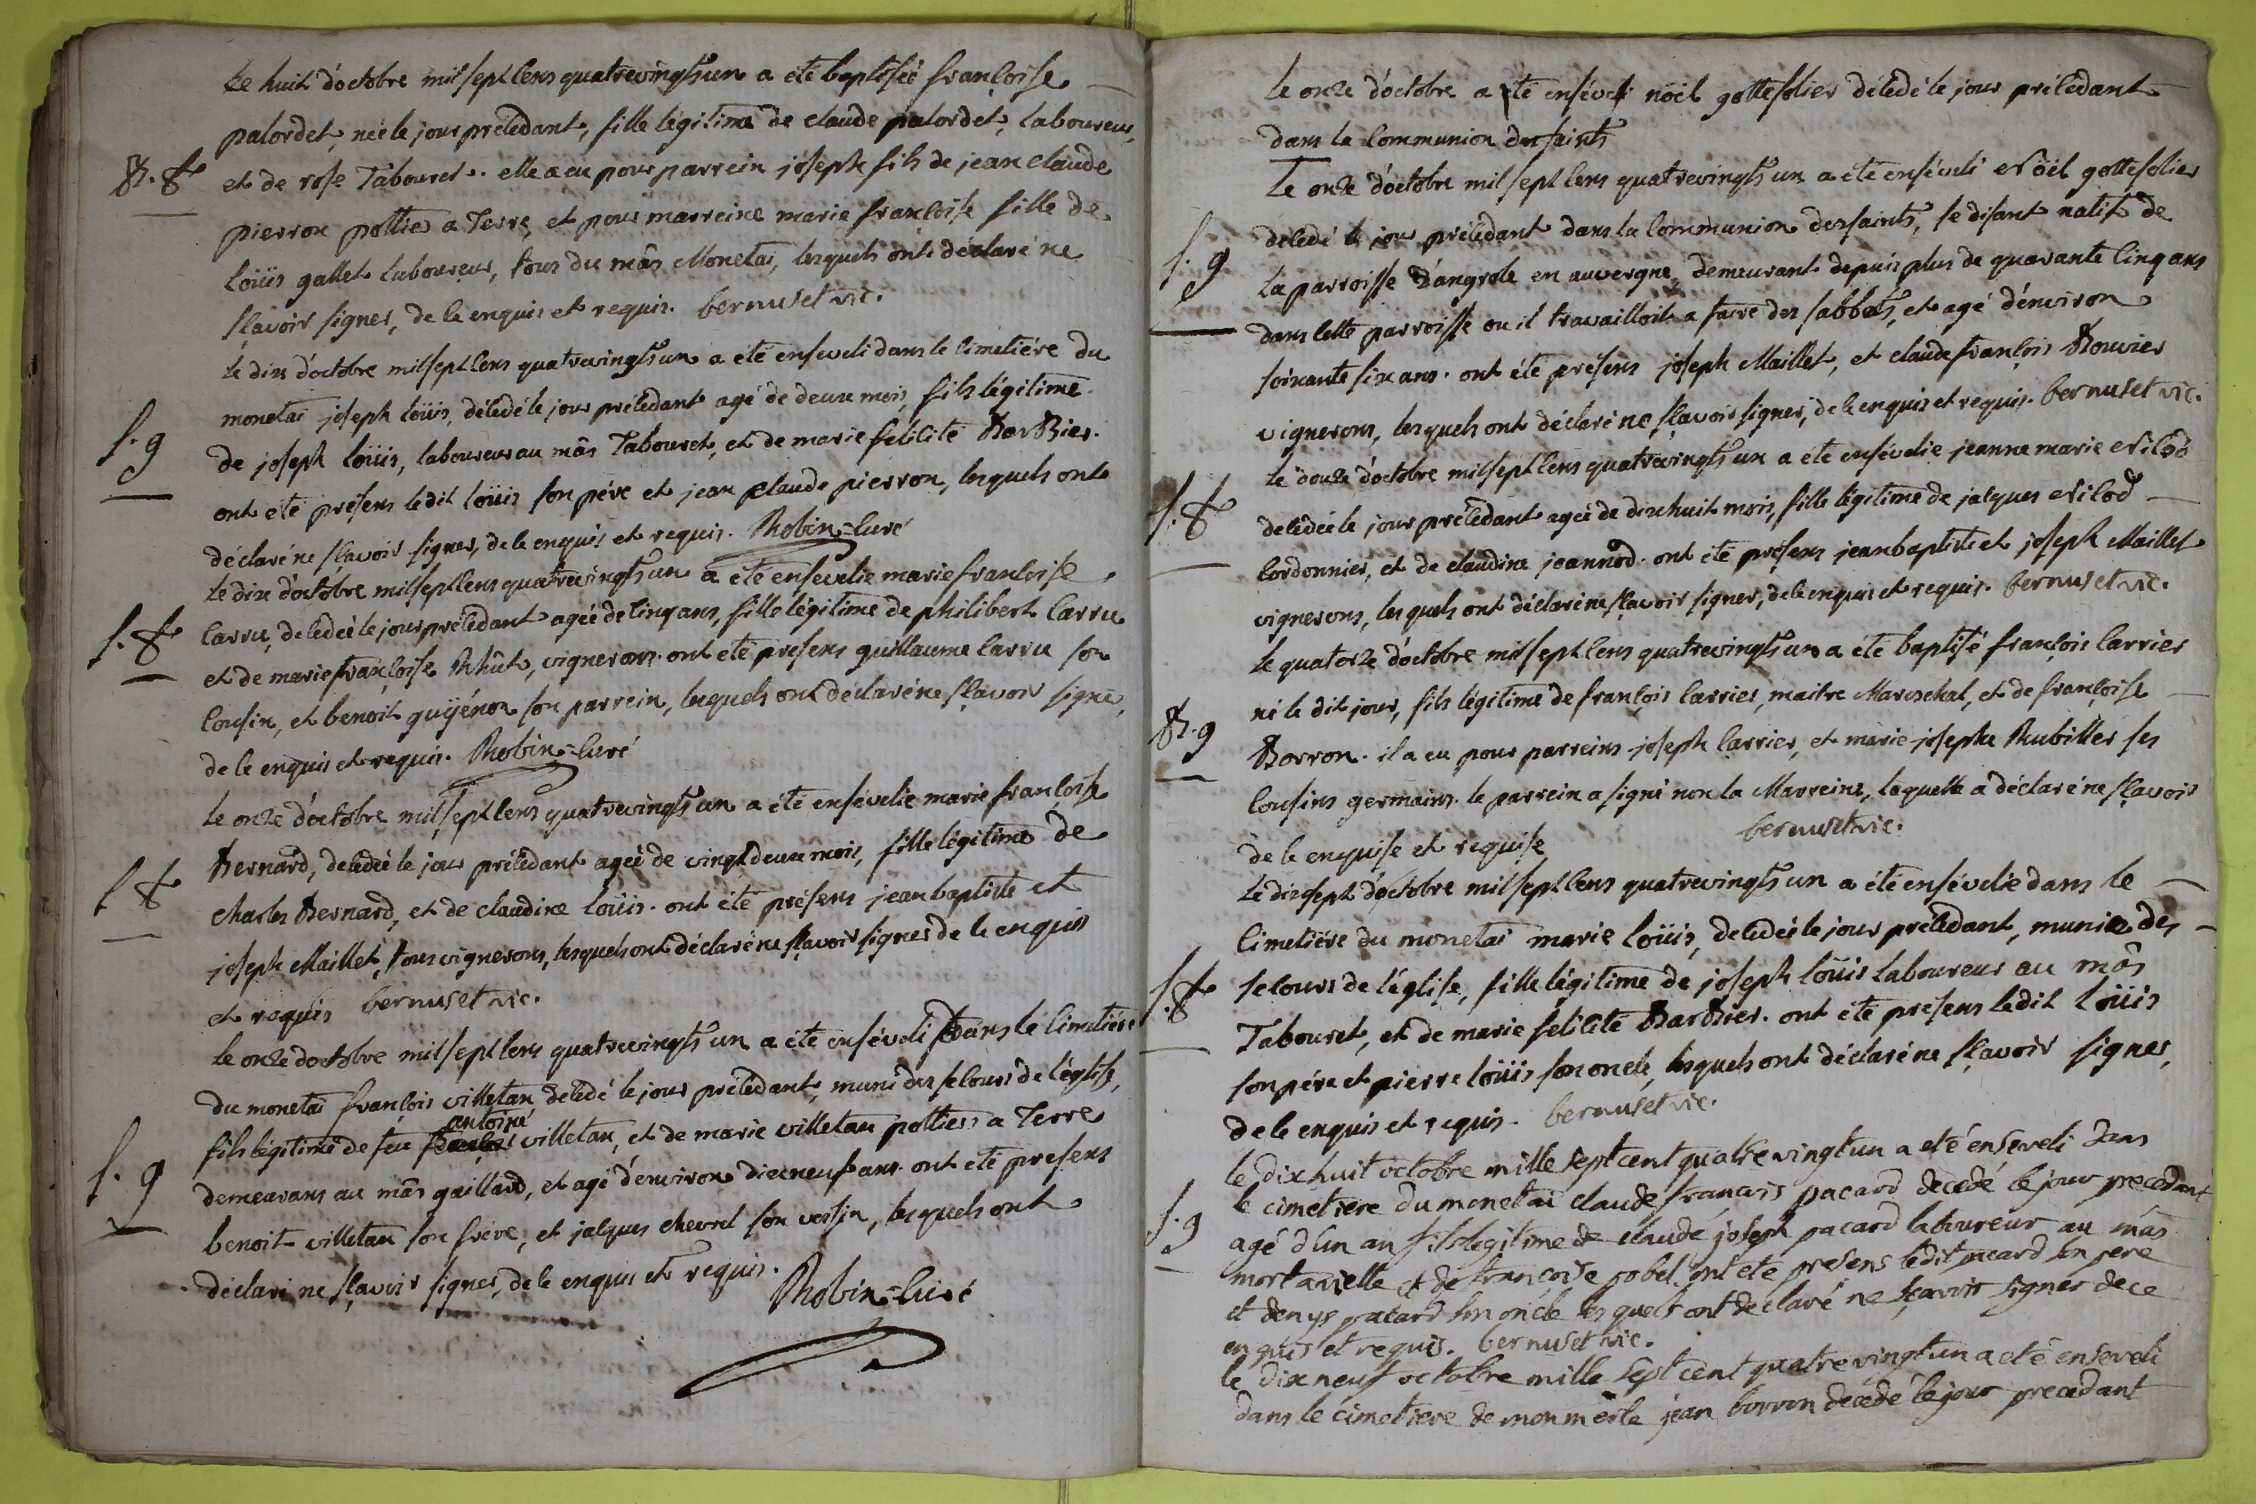 Le huit d'octobre mil sept cens quatrevingts un a été baptisée françoise
palordet, née le jour précedant, fille légitime de claude palordet, laboureur,
B. f et de rose Tabouret. elle a eu pour parrein joseph fils de jean claude
pierron pottier a Terre, et pour marreine marie françoise fille de
loüis gallet laboureur, tous du mâs Monetaï, lesquels ont déclaré ne
sçavoir signer, de ce enquis et requis. bernuset vic.
Le dix d'octobre mil sept cens quatrevingts un a été enseveli dans le cimetiére du
monetaï joseph loüis, décedé le jour précedant agé de deux mois, fils légitime
S. g de joseph loüis, laboureur au mâs Tabouret, et de marie felicité BarBier.
ont été présens le dit loüis son pére et jean claude pierron, lesquels ont
déclaré ne sçavoir signer, de ce enquis et requis. Robin=Curé
Le dix d'octobre mil sept cens quatrevingts un a été ensevelie marie françoise
S. f carru, decedée le jour précedant agée de cinq ans, fille légitime de philibert carru
et de marie françoise, vignerons. ont été présens guillaume carru son
cousin, et benoit guyénon son parrein, lesquels ont déclaré ne sçavoir signé,
de ce enquis et requis. Robin=Curé
Le onze d'octobre mil sept cens quatrevingts un a été ensévelie marie françoise
Bernard, decedée le jour précedant agée de vingt deux mois, fille légitime de
S f charles Bernard, et de claudine loüis. ont été présens jean baptiste et
joseph Maillet, tous vignerons, lesquels ont déclaré ne sçavoir signer de ce enquis
et requis bernuset vic.
Le onze d'octobre mil sept cens quatrevingts un a été enséveli dans le cimetiére
du monetaï françois villetan decedé le jour précedant, muni des secours de l'église,
antoine
fils légitime de feu villetan, et de marie villetan pottiers a Terre
S. g demeurans au mâs gaillard, et agé d'environ dixneuf ans. ont été présens
benoit villetan son frére, et jacques chevrel son voisin, lesquels ont
déclaré ne sçavoir signer, de ce enquis et requis.
Robin=Curé
Le onze d'octobre a été enséveli nöel gottefolier décedé le jour précedant
dans la communion des saints
Le onze d'octobre mil sept cens quatrevingts un a été enséveli Nöel gottefolier
S. g decedé le jour précedant dans la communion des saints, se disant natif de
la parroisse d'angrole en auvergne, demeurant depuis plus de quarante cinq ans
dans cette parroisse ou il travailloit a faire des sabbots, et agé d'environ
soixante six ans. ont été présens joseph Maillet, et claude françois Bouvier
vignerons, lesquels ont déclaré ne sçavoir signer, de ce enquis et requis. bernuset vic.
Le douze d'octobre mil sept cens quatrevingts un a été ensévelie jeanne marie Nilod
S. f decedée le jour précedant agée de dixhuit mois, fille légitime de jacques Nilod
cordonnier, et de claudine jeannod. ont été présens jean baptiste et joseph Maillet
vignerons, lesquels ont déclaré ne sçavoir signer, de ce enquis et requis. bernuset vic.
Le quatorze d'octobre mil sept cens quatrevingts un a été baptisé françois carrier
né le dit jour, fils légitime de françois carrier, maitre Mareschal, et de françoise
B. g Borron. il a eu pour parreins joseph carrier, et marie josephe Rubillet ses
cousins germains. le parrein a signé non la Marreine, laquelle a déclaré ne sçavoir
de ce enquise et requise bernuset vic.
Le dixsept d'octobre mil sept cens quatrevingts un a été ensévelie dans le
cimetiére du monetaï marie loüis, decedée le jour précedant, munie des
S. f secours de l'église, fille légitime de joseph loüis laboureur au mâs
Tabouret, et de marie felicité BarBier. ont été présens ledit loüis
son pére et pierre loüis son oncle, lesquels ont déclaré ne sçavoir signer,
de ce enquis et requis. bernuset vic.
le dixhuit octobre mille sept cent quatre vingt un a été enseveli dans
le cimetiere du monetai claude françois pacard decedé le jour precedant
S. g agé d'un an fils legitime de claude joseph pacard laboureur au mas
mortarielle et de françoise gobel. ont été presens ledit pacard son pere
et denys pacard son oncle lesquels ont declaré ne sçavoir signer de ce
enquis et requis. bernuset vic.
le dixneuf octobre mille sept cent quatre vingt un a été enseveli
dans le cimetiere de monmerle jean borron decedé le jour precedant